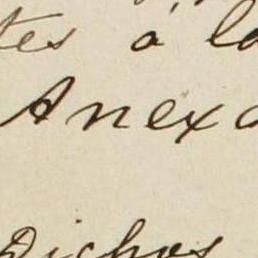 tes á la
Anexo
Dichos